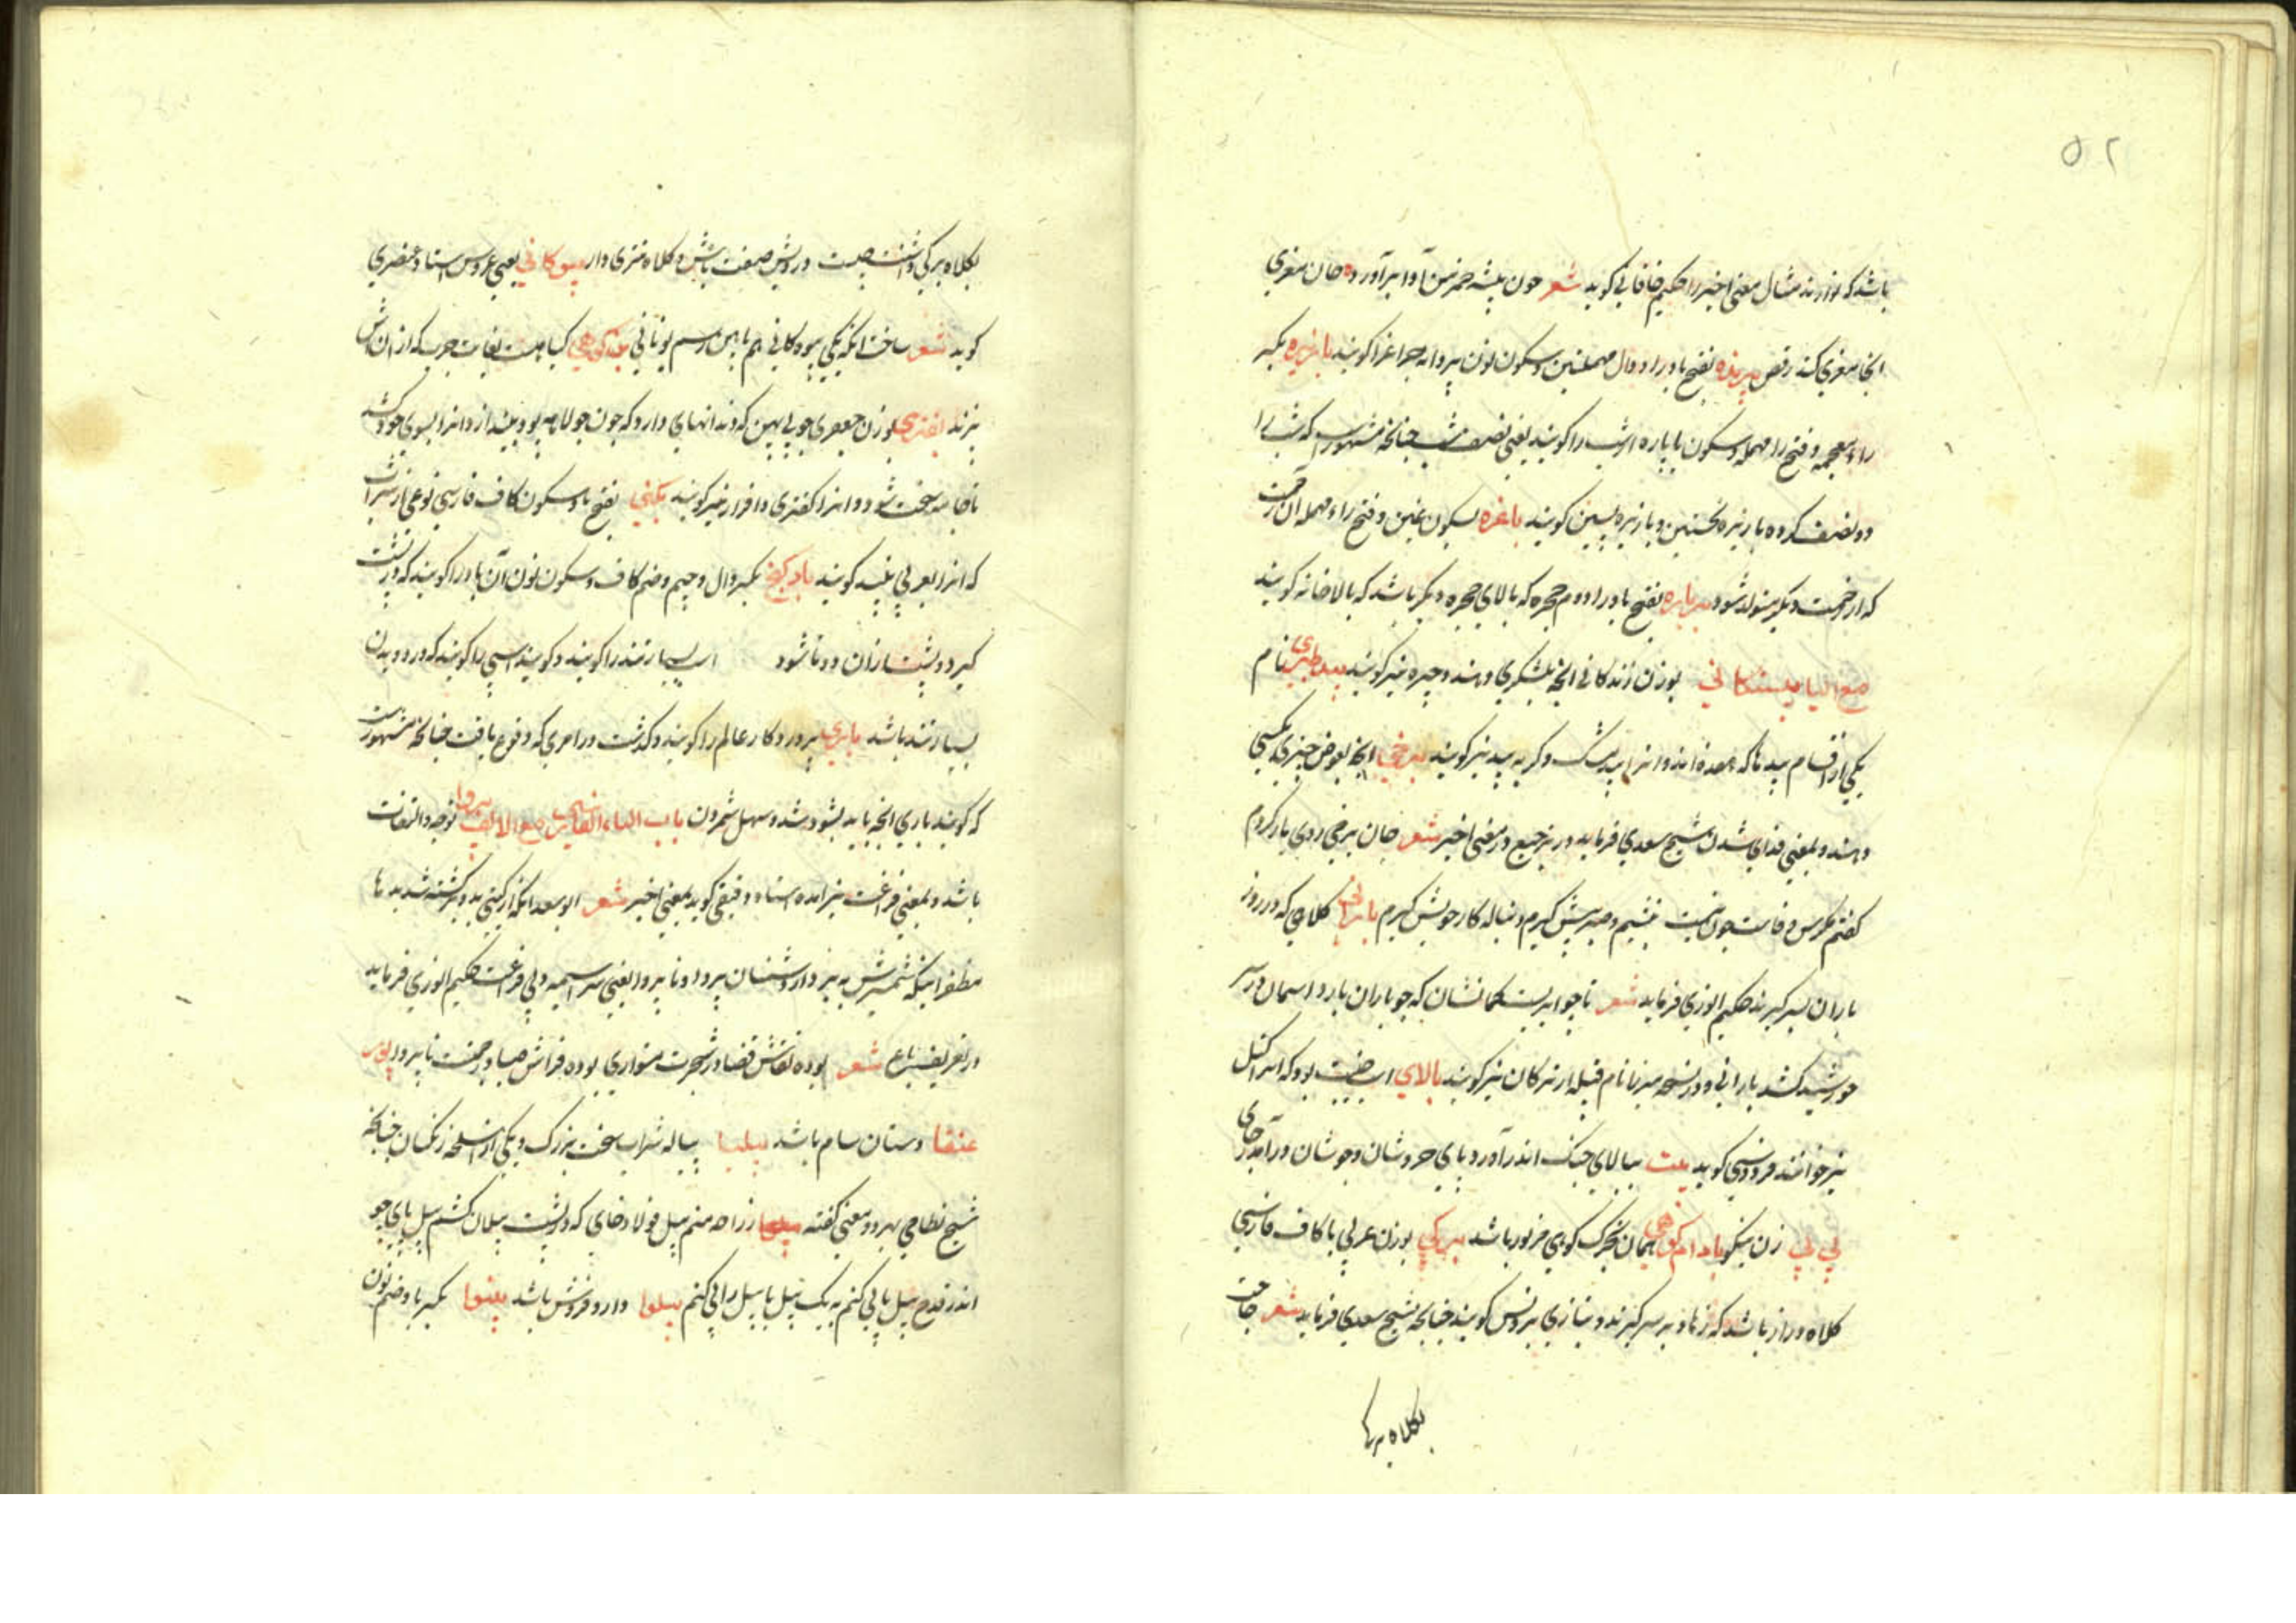 ۵۲
باشد که نوازند مثال معنی اخیر را حکیم خاقانی گوید شعر چون پشه خمر من آوا برآورده جان مغزی
انجا مغزی کند رقص پرنده بفتح با و را و دال مهملتین و سکون نون پروانه چراغرا کویند بازیره بکسر
راء معجمه و فتح را مهمله و سکون یا پاره از شب را کویند یعنی نصف شب چنانچه مشهور است که شب را
دو نصف کرده بازیره نخستین و بازیره پسین کویند باغره بسکون غین و فتح راء مهمله آن زحمت
که از زحمت دیگر متولد شود برباره بفتح با و را دوم حجره که بالای حجره دیگر باشد که بالاخانه کویند
مع الیا بیستکانی بوزن زندکانی آنچه بلشکری دهند و جیره نیز کویند بید طبری نام
یکی از اقسام بید تا که هفده اند و انرا بید مشک و کربه بید نیز کویند برخی آنچه بعوض چیزی بکسی
دهند و بمعنی فدای شدن شیخ سعدی فرماید در ترجیع در معنی اخیر شعر جان برخی روی یار کردم
کفتم مکرس وفاست چون نیست بنشینم و صبر پیش کیرم دنباله کار خویش کیرم بارانی کلاهی که در روز
باران بسر کیرند حکیم انوری فرماید شعر تا چو ابریست کمانشان که چو باران بارد آسمان در سر
خورشید کشد بارانی و در نسخه میرزا نام قبیله از ترکان نیز کویند بالای اسب جنیبت بود که اسرا کتل
نیز خوانند فردوسی کوید بیت ببالای جنک اندر آورد پای خروشان و جوشان درآمد ز جای
بی بی زن نیکو بادام کوهی همان بخرک کوهی مزبور باشد برکی بوزن عربی با کاف فارسی
کلاه دراز باشد که زهاد بر سر کیرند و بتازی برنس کویند چنانچه شیخ سعدی فرماید شعر حاجت
بکلاه برکی
بکلاه برکی داشتنت نیست درویش صفت باش و کلاه تتری دار بیوکانی یعنی عروسی استاد عنصری
کوید شعر ساخت انکه یکی بیوکانی هم بایین و رسم یونانی کیاهیست بغایت چرب که از ان آش
پزند بفتری بوزن جعفری چوبی پهن که دندانهای دارد که چون جولاهه پود بیندازد انرا بسوی خود کشد
تا جامه سخت شود و انرا کفتری و افراز نیز کویند بکنی بفتح با و سکون کاف فارسی نوعی از شراب
که انرا بعربی نبیذ کویند بادکنج بکسر دال و جیم و ضم کاف و سکون نون آن باد را کویند که در پشت
کیرد و پشت ازان دوتا شود اسب بسیار تند را کویند و کویند اسپی را کویند که در دویدن
بسیار تند باشد باری پروردکار عالم را کویند و کذشت در امری که وقوع یافت چنانچه مشهورست
که کویند باری انچه باید بشود شد و سهل شمردن باب الباء الفارسی مع الالف پروا توجه و التفات
باشد و بمعنی فراغت نیز امده استاد دقیقی کوید بمعنی اخیر شعر ابو سعد انکه از کیتی بدو برکشته شد بدها
مظفر انکه شمشیرش ببرد از دشمنان پروا و ناپروا یعنی سراسیمه و بی فراغت حکیم انوری فرماید
در تعریف باغ شعر بوده نقاش قضا در شجرت متواری بوده فراش صبا در چمنت ناپروا پور
عنقا دستان سام باشد پیلپا پیاله شراب سخت بزرک و یکی از اسلحه زنکیان چنانچه
شیخ نظامی بهر دو معنی کفته زراحه منم پیل فولادخای که در پشت پیلان کشم پیل پای چو
اندر قدح پیل پایی کنم به یک پیل پا پیل را پی کنم پیلوا دارو فروش باشد پینوا بکسر با و ضم نون